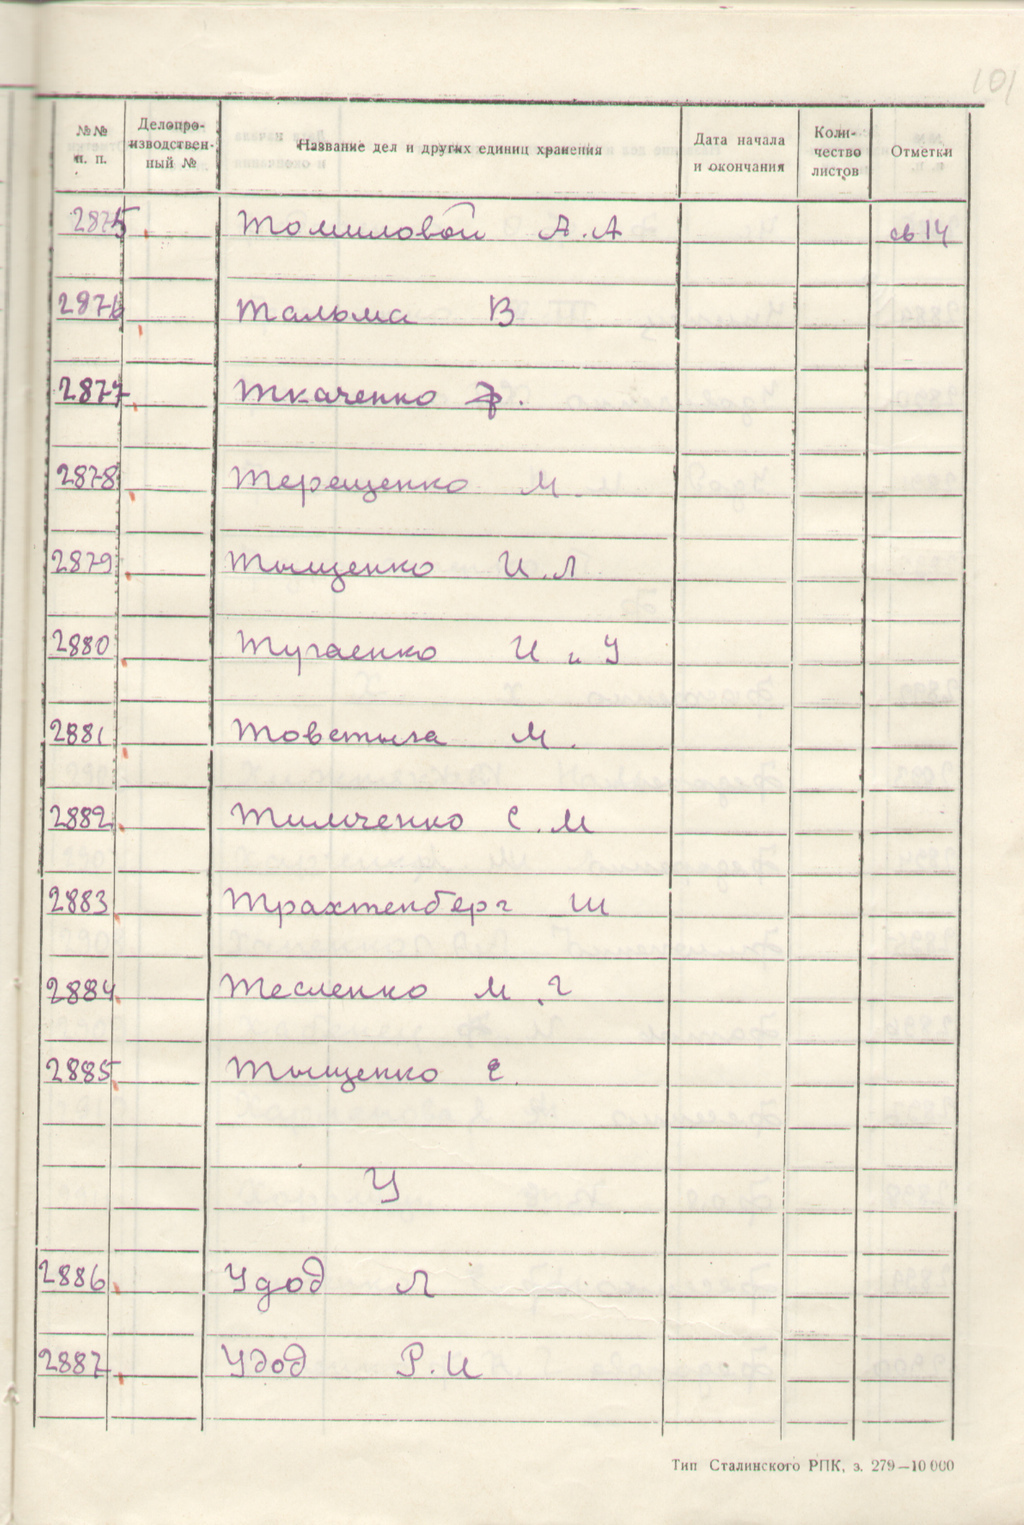 101
№№ п. п. Делопроизводственный № Название дел и других единиц хранения Дата начала и окончания Количество листов Отметки
2875 Томиловой А.А св 14
2876 Тальма В
2877 Ткаченко Ф.
2878 Терещенко М.
2879 Тыщенко И.Л
2880 Тугаенко И и У
2881 М.
2882 Тимченко С.М
2883 Трахтенберг Ш
2884 Тесленко М.Г
2885 Тыщенко Е.
У
2886 Удод Л
2887 Удод Р.И
Тип Сталинского РПК, з. 279—10 000